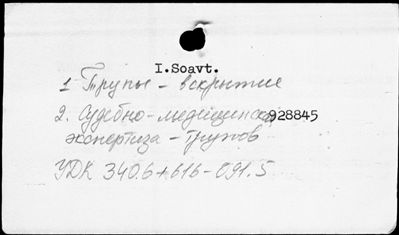 I.Soavt.
1 Трупы - вскрытие
2. Судебно-медицинская 928845
экспертиза - трупов
УДК 340.6+616-091.5